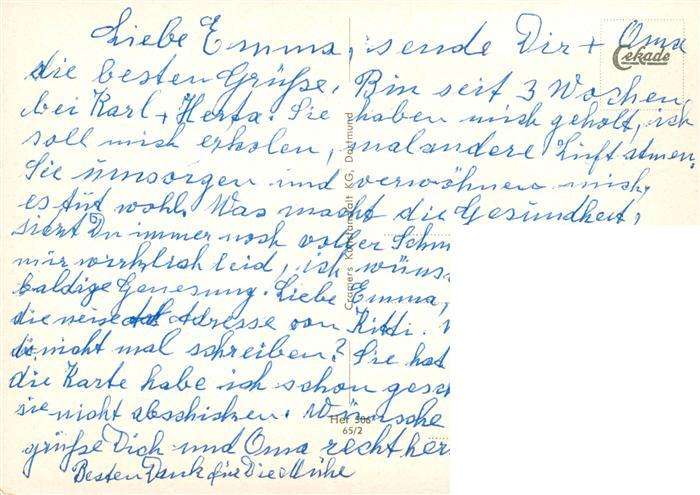 Liebe Emma, sende Dir + Oma
die besten Grüße. Bin seit 3 Wochen
bei Karl + Herta. Sie haben mich geholt, ich
soll mich erholen, mal andere Luft atmen.
Sie umsorgen und verwöhnen mich,
es tut wohl. Was macht die Gesundheit,
Du immer noch voller Schm
mir wirklich leid, ich wüns
baldige Genesung. Liebe Emma,
die Adresse von Kitti.
nicht mal schreiben? Sie hat
die Karte habe ich schon gesch
sie nicht abschicken. Wünsche
grüße Dich und Oma recht her
Besten Dank für Die Mühe
Cekade
Cramers Kunstanstalt KG, Dortmund
Hef 506
65/2